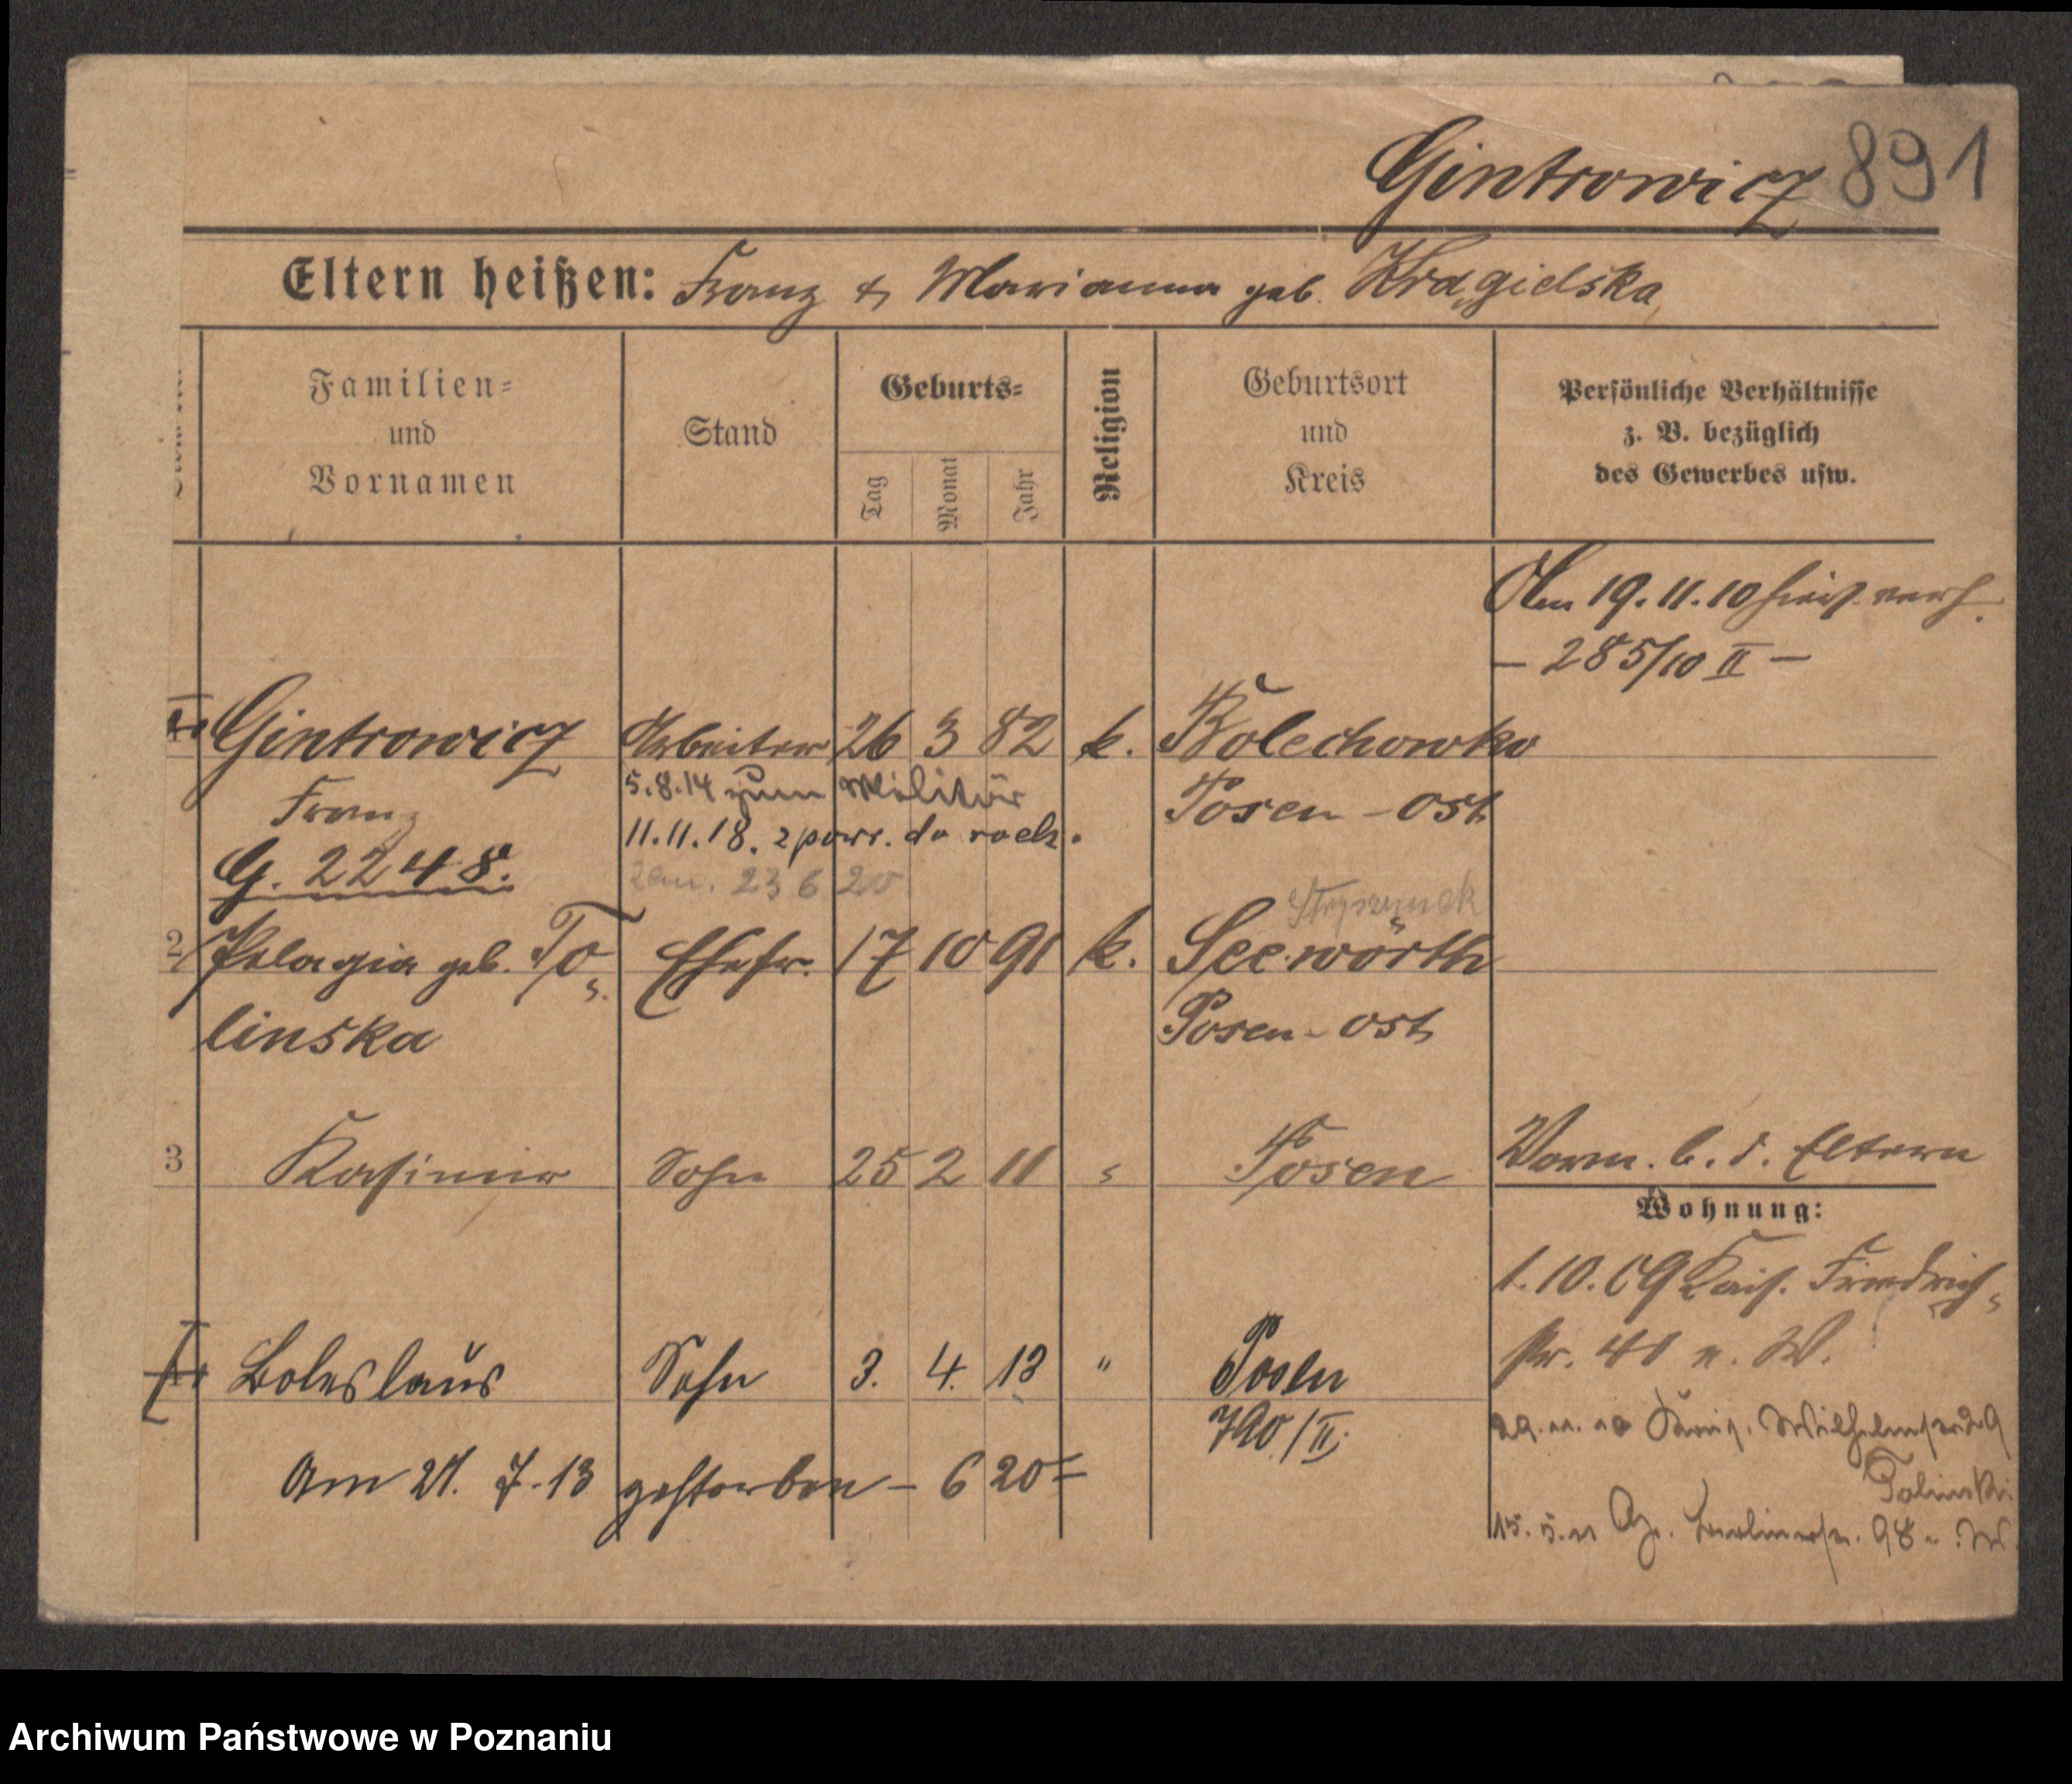 Gintrowicz 891
Eltern heißen: Franz & Marianna geb. Krągielska
Familien-
und
Vornamen
Stand
Geburts-
Tag
Monat
Jahr
Religion
Geburtsort
und
Kreis
Persönliche Verhältnisse
z. B. bezüglich
des Gewerbes usw.
Am 19.11.10 hier verh.
– 285/10 II –
Gintrowicz Arbeiter 26 3 82 k. Bolechowko
Franz 5.8.14 zum Militär Posen-Ost
11.11.18. z powr. do
G. 2248.
zam. 23 6 20
2 Pelagia geb. To- Ehefr. 17 10 91 k. Seewörth
linska Posen-Ost
3 Kasimir Sohn 25 2 11 " Posen
Vorm. b. d. Eltern
Wohnung:
1.10.09 Kais. Friedrich-
str. 41 b. W.
Boleslaus Sohn 3. 4. 13 " Posen
790/II.
Am 21. 7. 13 gestorben – 620
29.11.10 Wilhelmstr 29
Tolinski
15.5.11 Berlinerstr. 98
Archiwum Państwowe w Poznaniu